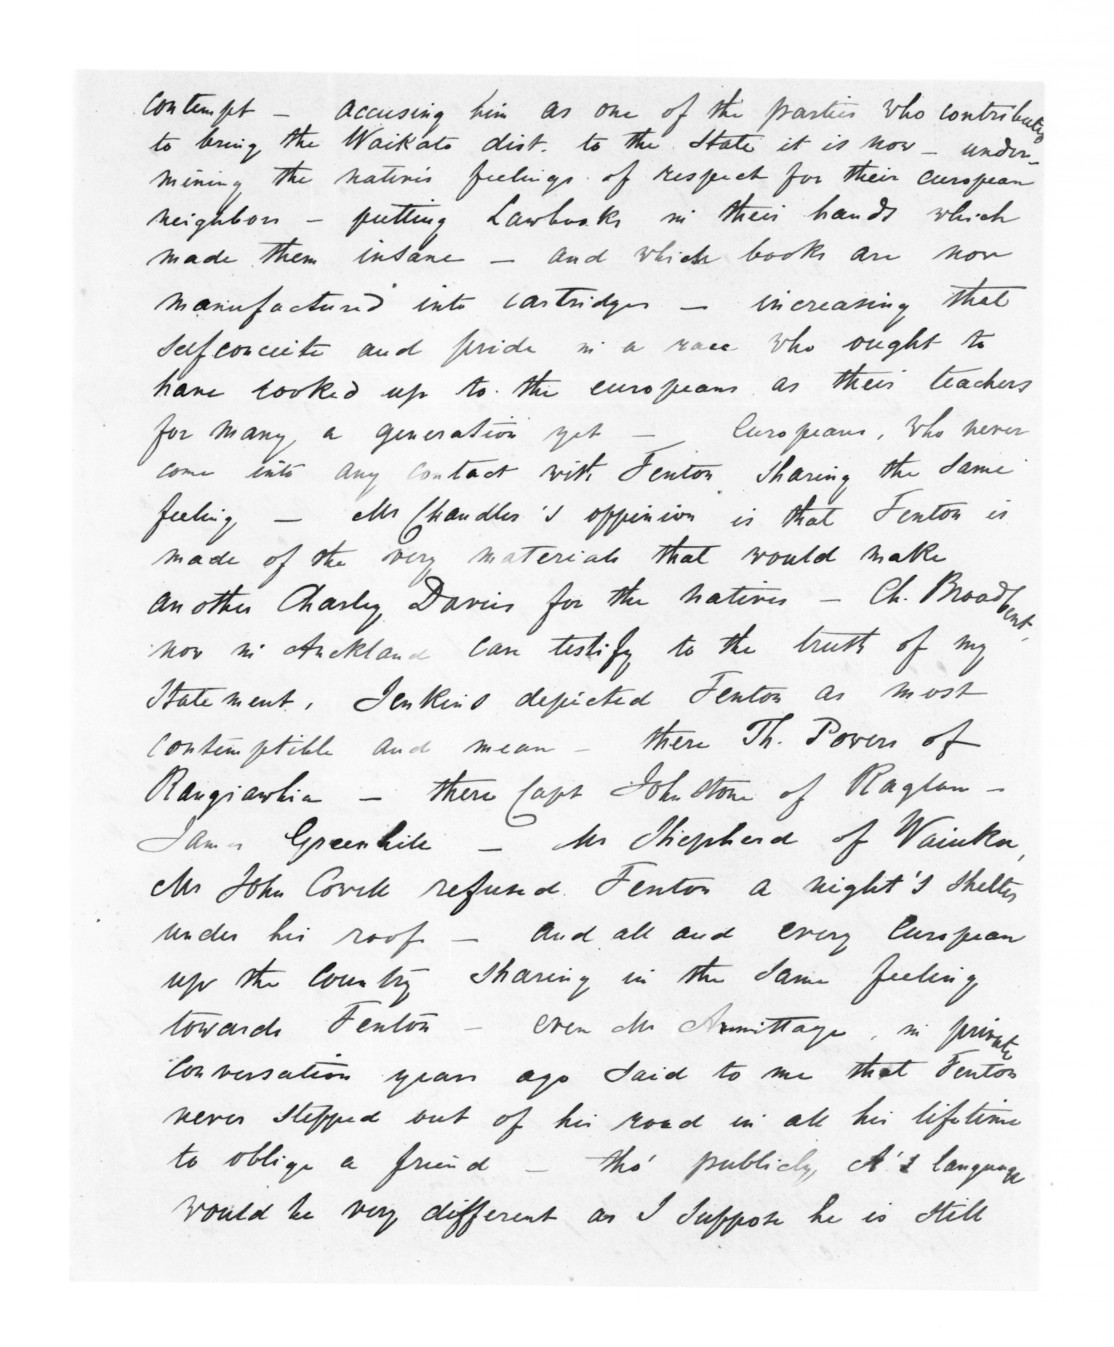 contempt – accusing him as one of the parties who contributed
to bring the Waikato dist. to the State it is now – under-
mining the native's feelings of respect for their european
neighbors – putting Lawbooks in their hands which
made them insane – and which books are now
manufactured into cartridges – increasing that
selfconceite and pride in a race who ought to
have looked up to the europeans as their teachers
for many a generation yet – Europeans, who never
come into any contact with Fenton sharing the same
feeling – Mr Chandler's oppinion is that Fenton is
made of the very materials that would make
another Charley Davis for the natives – Ch. Broadbent,
now in Auckland can testify to the truth of my
Statement. Jenkins depicted Fenton as most
contemptible and mean – there Th. Power of
Rangiawhia – there Capt Johnstone of Raglan –
James Greenhill – Mr Shepherd of Waiuku,
Mr John Cowell refused Fenton a night's shelter
under his roof – and all and every European
up the Country sharing in the same feeling
towards Fenton – even Mr Armittage, in private
Conversation years ago said to me that Fenton
never stepped out of his road in all his lifetime
to oblige a friend – tho' publicly A's language
would be very different as I suppose he is still